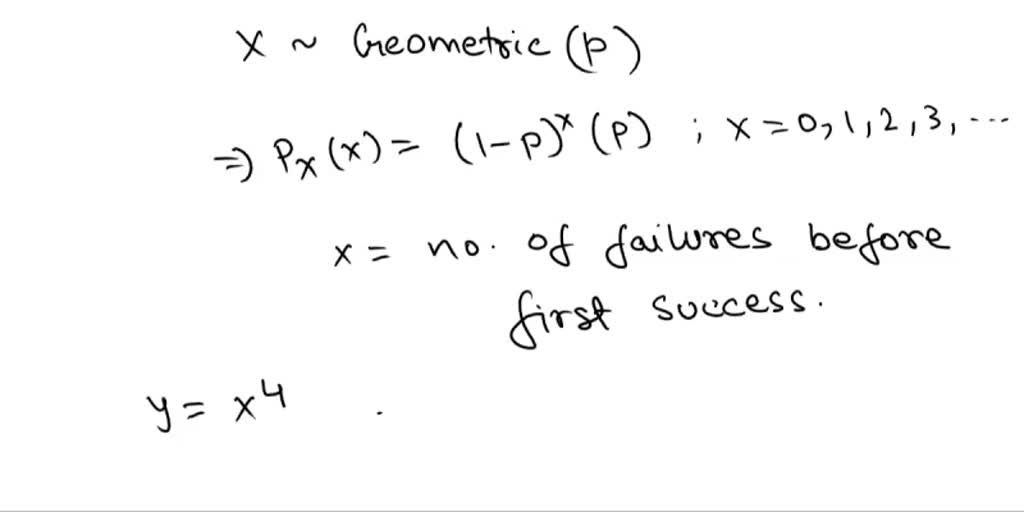 X ~ Geometric (p)
⇒ P_X(x) = (1-p)^x (p) ; x = 0, 1, 2, 3, ...
x = no. of failures before
first success.
y = x^4 .